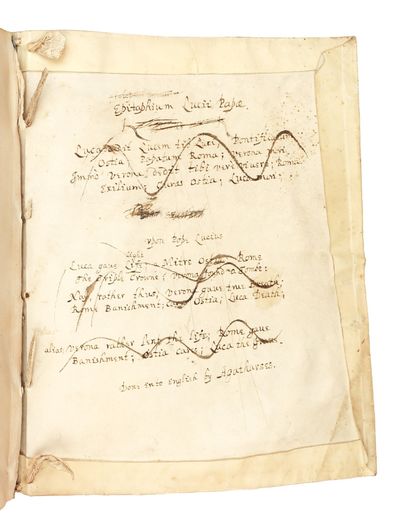 Epitaphium Lucii Papæ
Luca dedit Lucem tibi Luci, Pontificatum
Ostia, Papatum Roma; Verona mori,
Immo Verona dedit tibi vere vivere; Roma
Exilium; Curas Ostia; Luca mori;
upon Pope Lucius
light
Luca gave Life; a Mitre Ostia, Rome
The Triple Crowne; Verona a Tombe:
Nay, rather thus, Verona gave true
Roma Banishment; Ostia; Luca Death;
alias, Verona rather the life, Rome gave
Banishment; Ostia Care; Luca the grave.
Done into English by